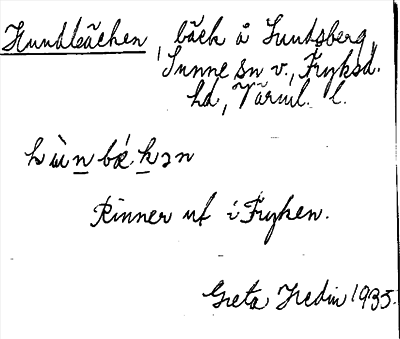 Hundbäcken, bäck å Sundsberg,
Sunne sn v., Fryksd.
hd, Värml. l.
hùnbǽkən
Rinner ut i Fryken.
Greta Hedin 1935.